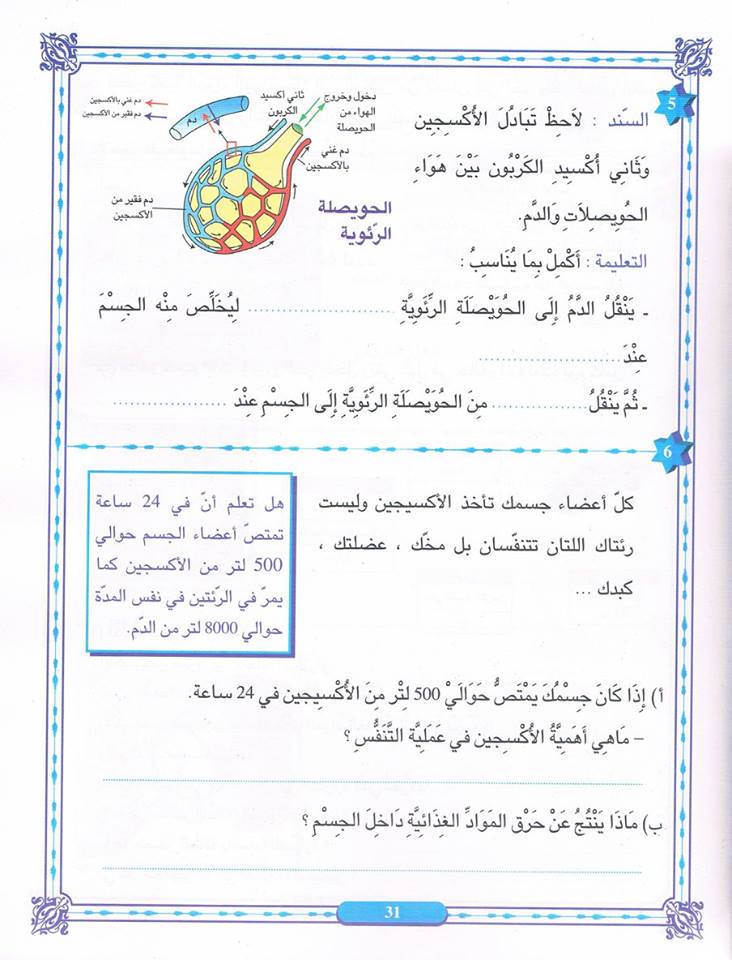 5
السّند : لاَحِظْ تَبَادُلَ الأُكْسِجِين
وَثَانِي أُكْسِيدِ الكَرْبُون بَيْنَ هَوَاءِ
الحُوِيصِلاَتِ وَالدَّم.
دخول وخروج
الهواء من
الحويصلة
ثاني أكسيد
الكربون
دم غني بالأكسجين
دم فقير من الأكسجين
دم
دم غني
بالأكسجين
دم فقير من
الأكسجين
الحويصلة
الرّئوية
التعليمة : أَكْمِلْ بِمَا يُنَاسِبُ :
ـ يَنْقُلُ الدَّمُ إِلَى الحُوَيْصَلَةِ الرِّئَوِيَّةِ .................... لِيُخَلِّصَ مِنْه الجِسْمَ
عِنْدَ....................
ـ ثُمَّ يَنْقُلُ.................... مِنَ الحُوَيْصَلَةِ الرِّئَوِيَّةِ إِلَى الجِسْمِ عِنْدَ ....................
6
كلّ أعضاء جسمك تأخذ الأكسيجين وليست
رئتاك اللتان تتنفّسان بل مخّك ، عضلتك ،
كبدك ...
هل تعلم أنّ في 24 ساعة
تمتصّ أعضاء الجسم حوالي
500 لتر من الأكسجين كما
يمرّ في الرّئتين في نفس المدّة
حوالي 8000 لتر من الدّم.
أ) إِذَا كَانَ جِسْمُكَ يَمْتَصُّ حَوَالَيْ 500 لِتْر مِنَ الأُكْسِيجِين في 24 ساعة.
– مَاهِي أَهَمِيَّةُ الأُكْسِجِين في عَمَلِيَّة التَّنَفُّسِ ؟
ب) مَاذَا يَنْتُجُ عَنْ حَرْقِ المَوَادِّ الغِذَائِيَّةِ دَاخِلَ الجِسْمِ ؟
31